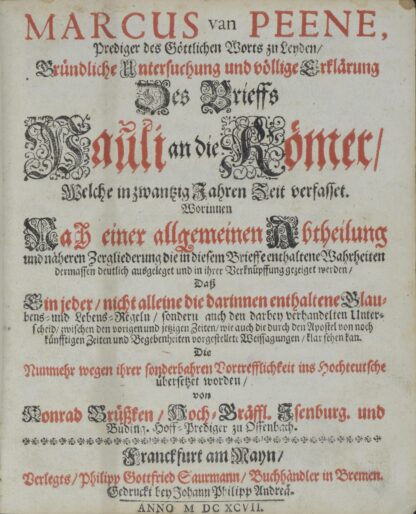 MARCUS van PEENE,
Prediger des Göttlichen Worts zu Leyden/
Gründliche Untersuchung und völlige Erklärung
Des Brieffs
Pauli an die Römer/
Welche in zwantzig Jahren Zeit verfasset.
Worinnen
Nach einer allgemeinen Abtheilung
und näheren Zergliederung die in diesem Brieffe enthaltene Wahrheiten
dermassen deutlich ausgeleget und in ihrer Verknüpffung gezeiget werden/
Daß
Ein jeder/ nicht alleine die darinnen enthaltene Glau-
bens- und Lebens-Regeln/ sondern auch den darbey verhandelten Unter-
scheid/ zwischen den vorigen und jetzigen Zeiten/ wie auch die durch den Apostel von noch
künfftigen Zeiten und Begebenheiten vorgestellte Weissagungen/ klar sehen kan.
Die
Nunmehr wegen ihrer sonderbahren Vortrefflichkeit ins Hochteutsche
übersetzet worden/
von
Konrad Brüßken/ Hoch-Gräffl. Isenburg. und
Büding. Hoff-Prediger zu Offenbach.
Franckfurt am Mayn/
Verlegts/ Philipp Gottfried Saurmann/ Buchhändler in Bremen.
Gedruckt bey Johann Philipp Andreä.
ANNO M DC XCVII.